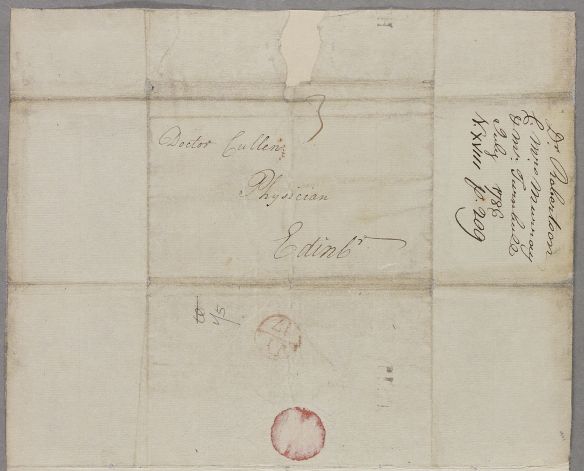 3
Doctor Cullen
Physician
Edinbr
Dr Robertson
& Mrs Murray
& Mr Turnbull
July 1786
XXVIII p. 209